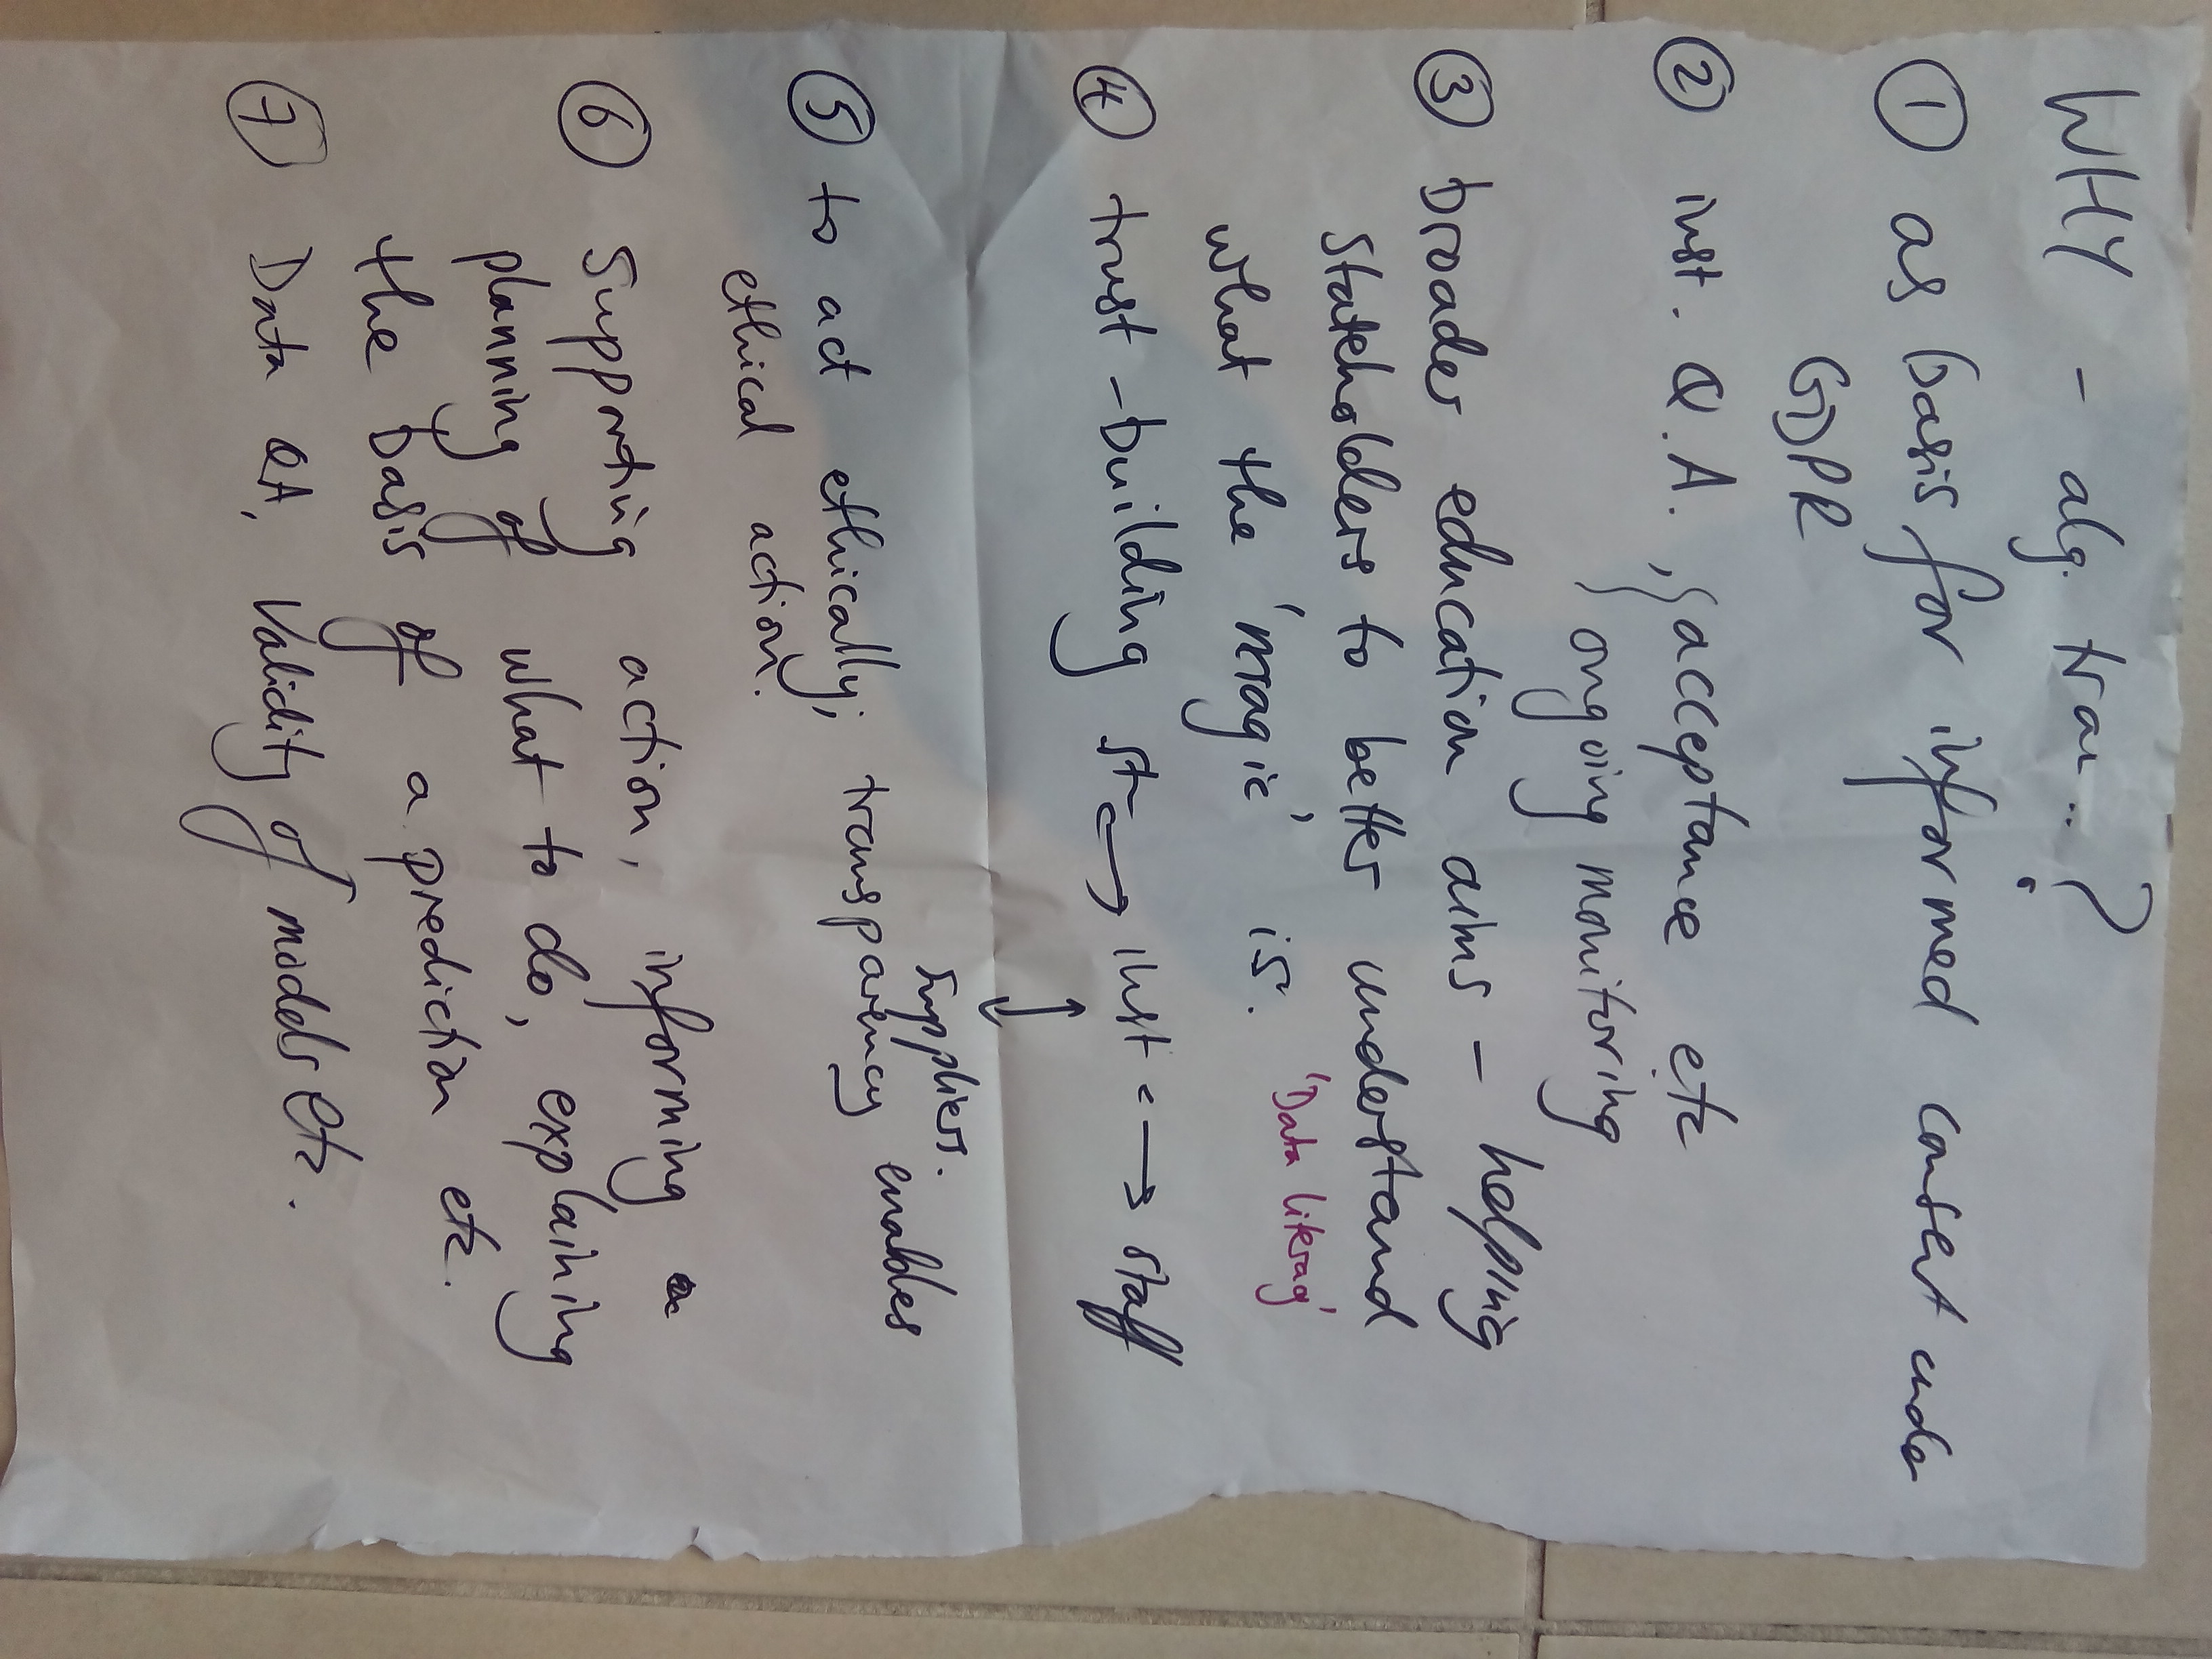 WHY - alg. tran..?
① as basis for informed consent under
GDPR
② inst. Q.A., { acceptance etc
{ ongoing monitoring
③ broader education aims - helping
stakeholders to better understand
what the 'magic' is. 'Data literacy'
④ trust-building st ↔ inst ↔ staff
↕
Suppliers.
⑤ to act ethically; transparency enables
ethical action.
⑥ Supporting action, informing
planning of what to do, explaining
the basis of a prediction etc.
⑦ Data QA, Validity of models etc.